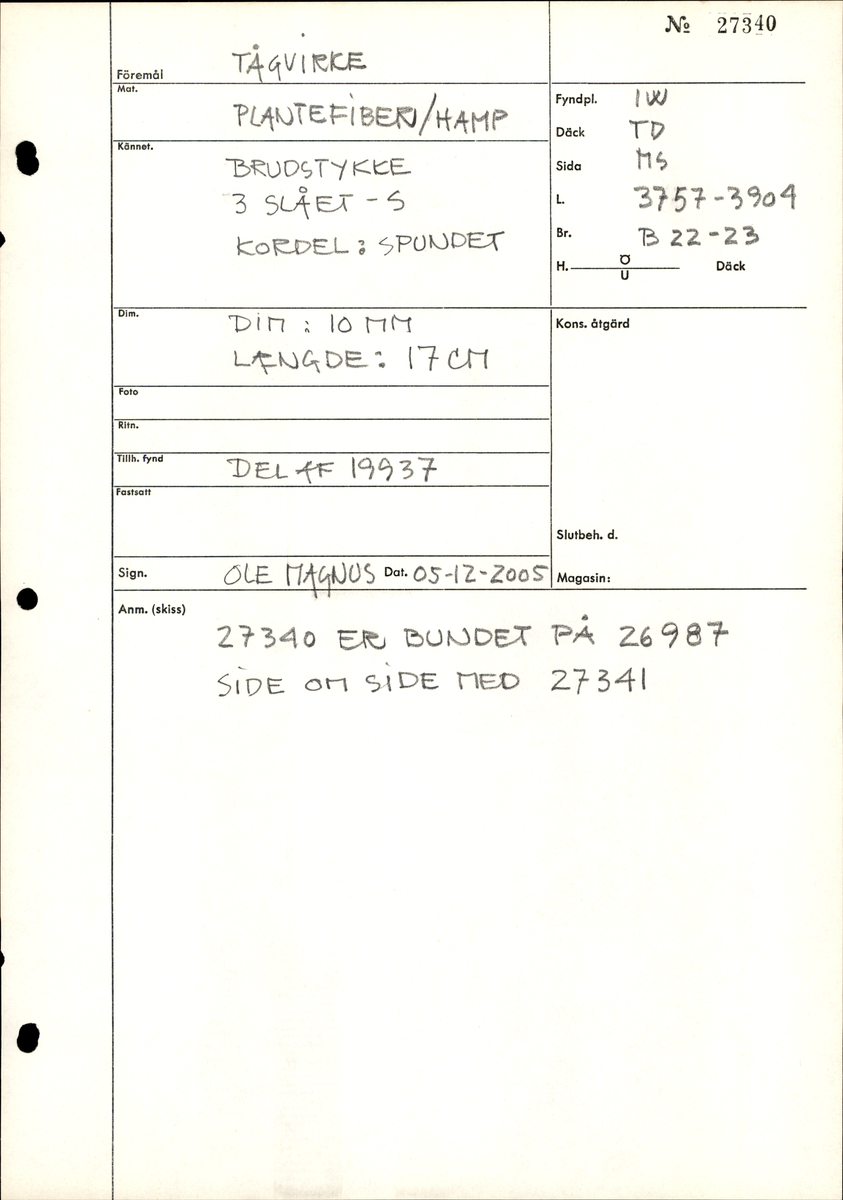 № 27340
Föremål TÅGVIRKE
Mat. PLANTEFIBER/HAMP
Fyndpl. IW
Däck TD
Kännet. BRUDSTYKKE
Sida MS
3 SLÅET - S
L. 3757-3904
KORDEL: SPUNDET
Br. B 22-23
H. Ö U Däck
Dim. DIM: 10 MM
Kons. åtgärd
LÆNGDE: 17 CM
Foto
Ritn.
Tillh. fynd DEL AF 19937
Fastsatt
Slutbeh. d.
Sign. OLE MAGNUS Dat. 05-12-2005
Magasin:
Anm. (skiss)
27340 ER BUNDET PÅ 26987
SIDE OM SIDE MED 27341